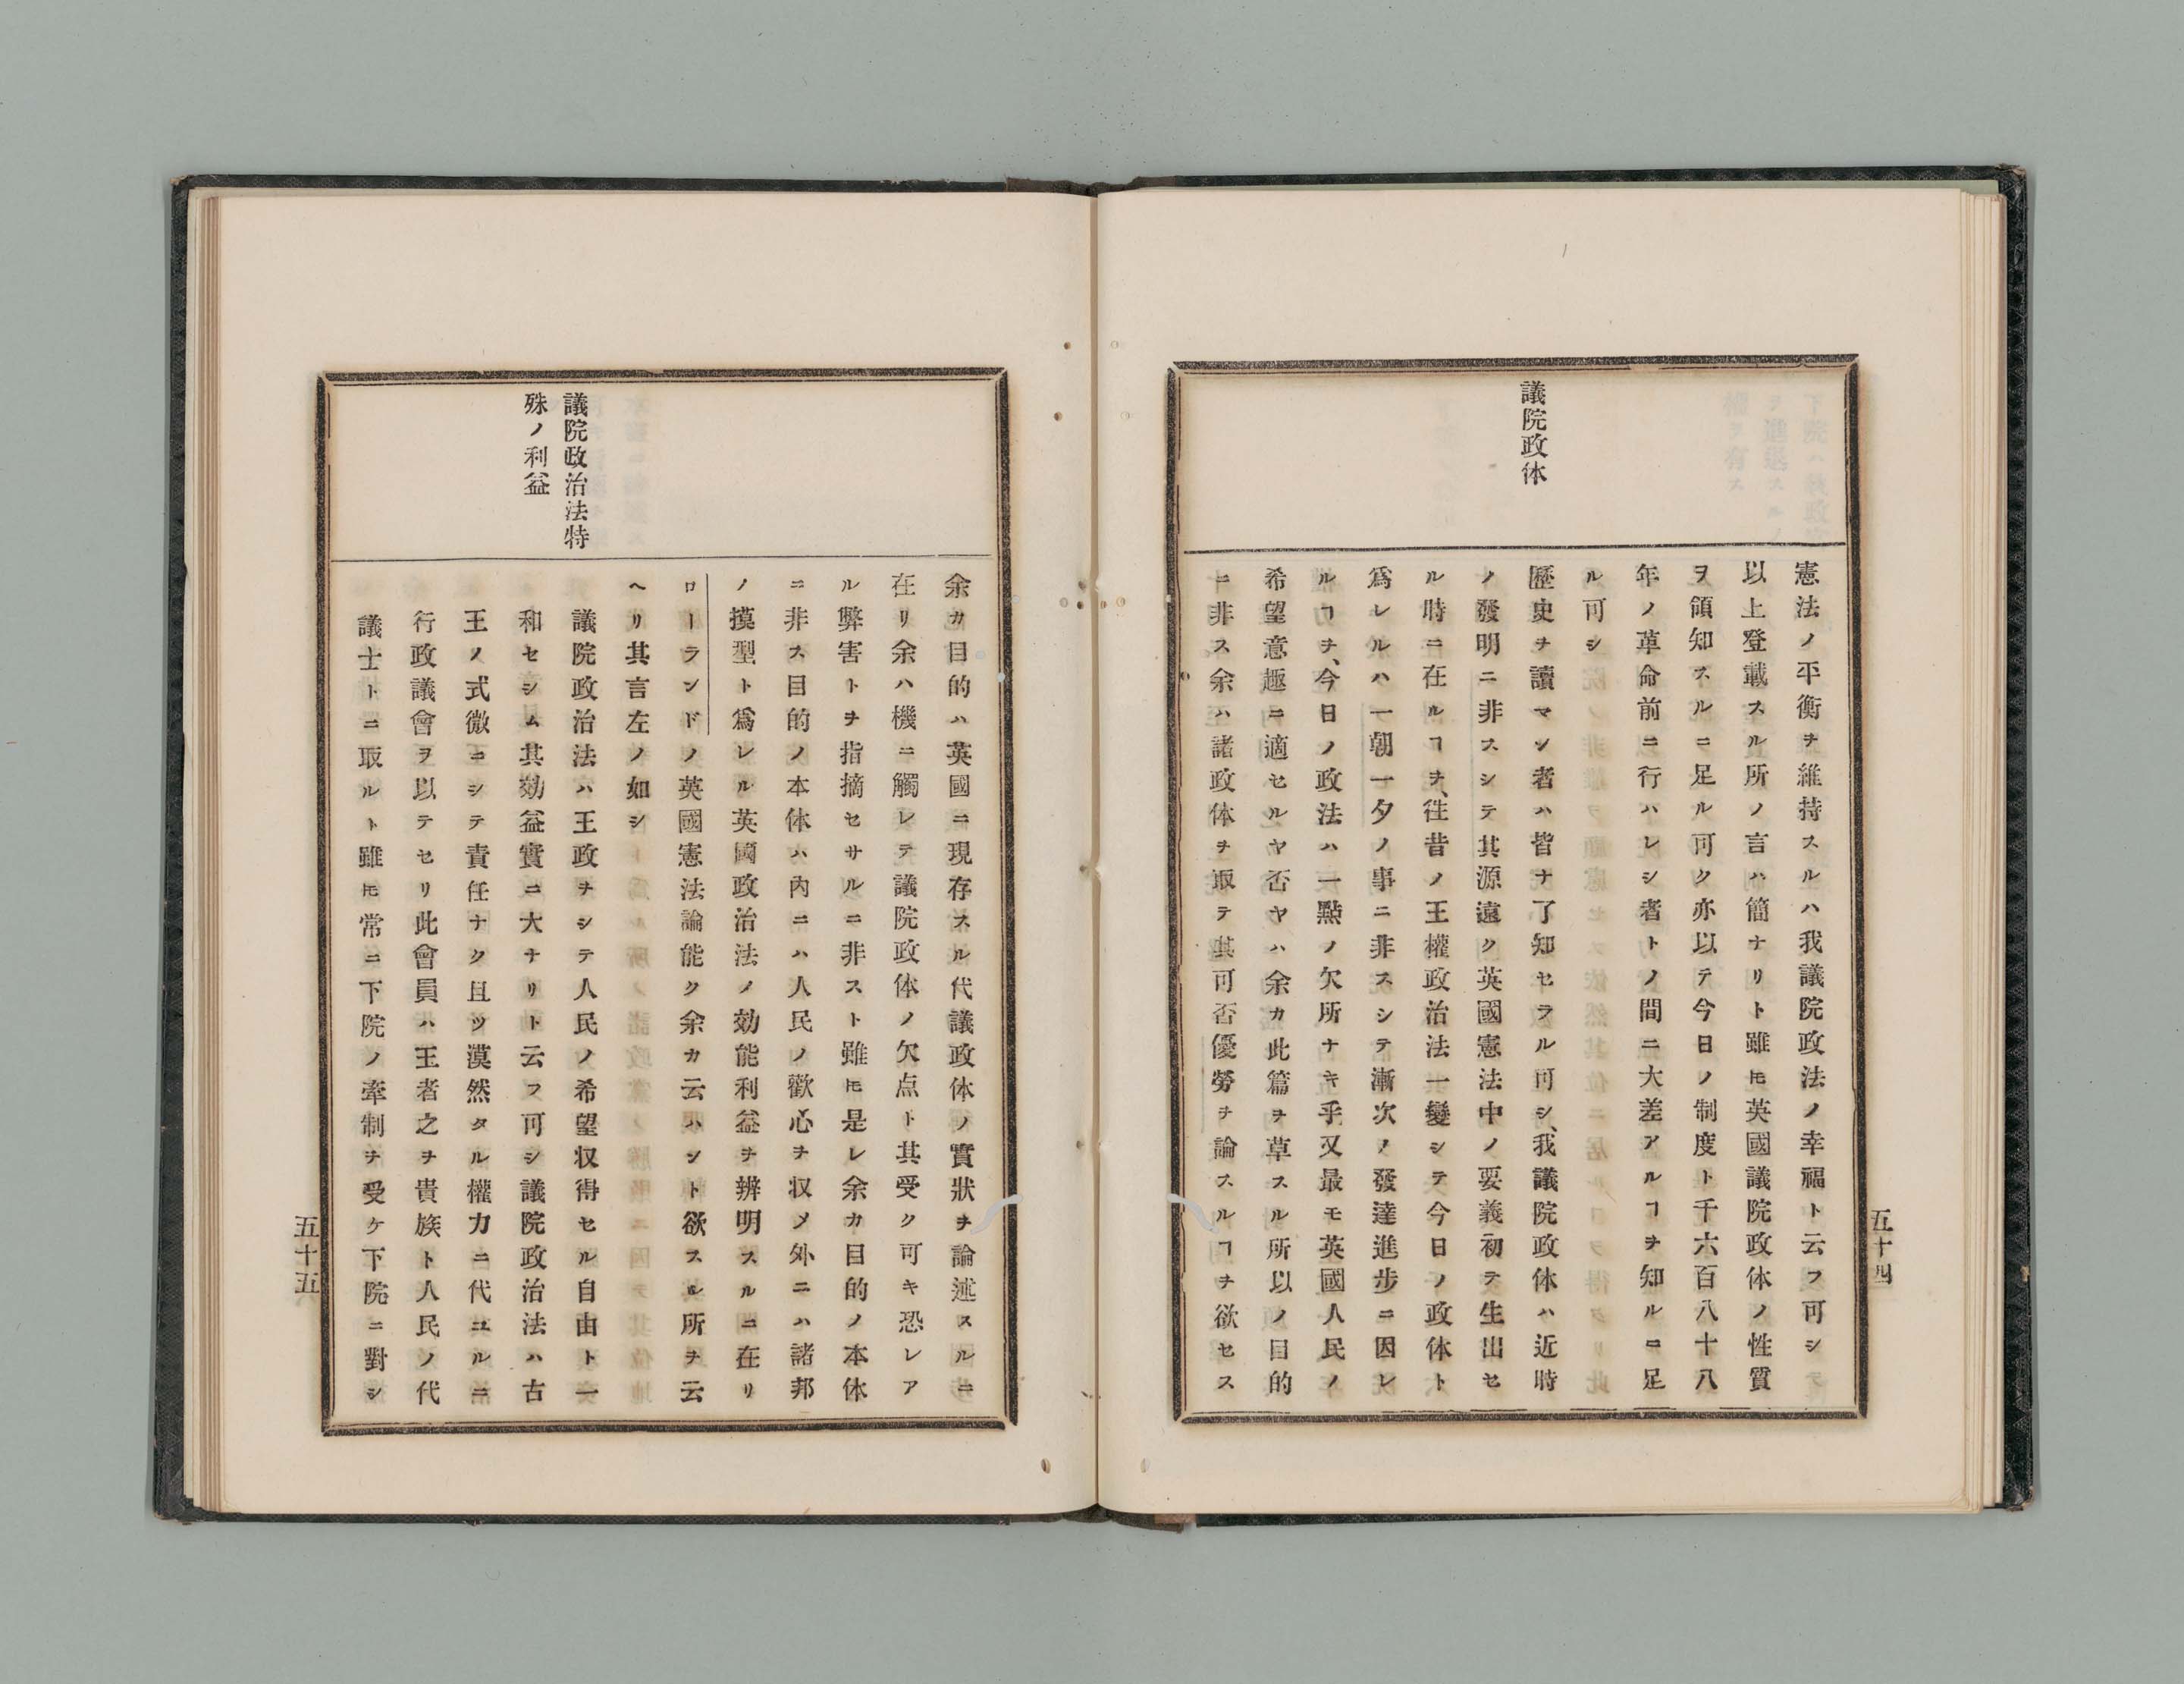 議院政体
憲法ノ平衡ヲ維持スルハ我議院政法ノ幸福ト云フ可シ
以上登載スル所ノ言ハ簡ナリト雖𪜈英國議院政体ノ性質
ヲ領知スルニ足ル可ク亦以テ今日ノ制度ト千六百八十八
年ノ革命前ニ行ハレシ者トノ間ニ大差アルヿヲ知ルニ足
ル可シ
歷史ヲ讀マン者ハ皆ナ了知セラル可シ、我議院政体ハ近時
ノ發明ニ非スシテ其源遠ク英國憲法中ノ要義初テ生出セ
ル時ニ在ルヿヲ、徃昔ノ王權政治法一變シテ今日ノ政体ト
爲レルハ一朝一夕ノ事ニ非スシテ漸次ノ發達進步ニ因レ
ルヿヲ、今日ノ政法ハ一點ノ欠所ナキ乎又最モ英國人民ノ
希望意趣ニ適セルヤ否ヤハ余カ此篇ヲ草スル所以ノ目的
ニ非ス余ハ諸政体ヲ取テ其可否優劣ヲ論スルヿヲ欲セス
五十四
議院政治法特
殊ノ利益
余カ目的ハ英國ニ現存スル代議政体ノ實狀ヲ論述スルニ
在リ余ハ機ニ觸レテ議院政体ノ欠点ト其受ク可キ恐レア
ル弊害トヲ指摘セサルニ非スト雖𪜈是レ余カ目的ノ本体
ニ非ス目的ノ本体ハ內ニハ人民ノ歡心ヲ収メ外ニハ諸邦
ノ摸型ト爲レル英國政治法ノ効能利益ヲ辨明スルニ在リ
ローランドノ英國憲法論能ク余カ云ハント欲スル所ヲ云
ヘリ其言左ノ如シ
議院政治法ハ王政ヲシテ人民ノ希望収得セル自由ト一
和セシム其効益實ニ大ナリト云フ可シ議院政治法ハ古
王ノ式微ニシテ責任ナク且ツ漠然タル權力ニ代ユルニ
行政議會ヲ以テセリ此會員ハ王者之ヲ貴族ト人民ノ代
議士トニ取ルト雖𪜈常ニ下院ノ牽制ヲ受ケ下院ニ對シ
五十五